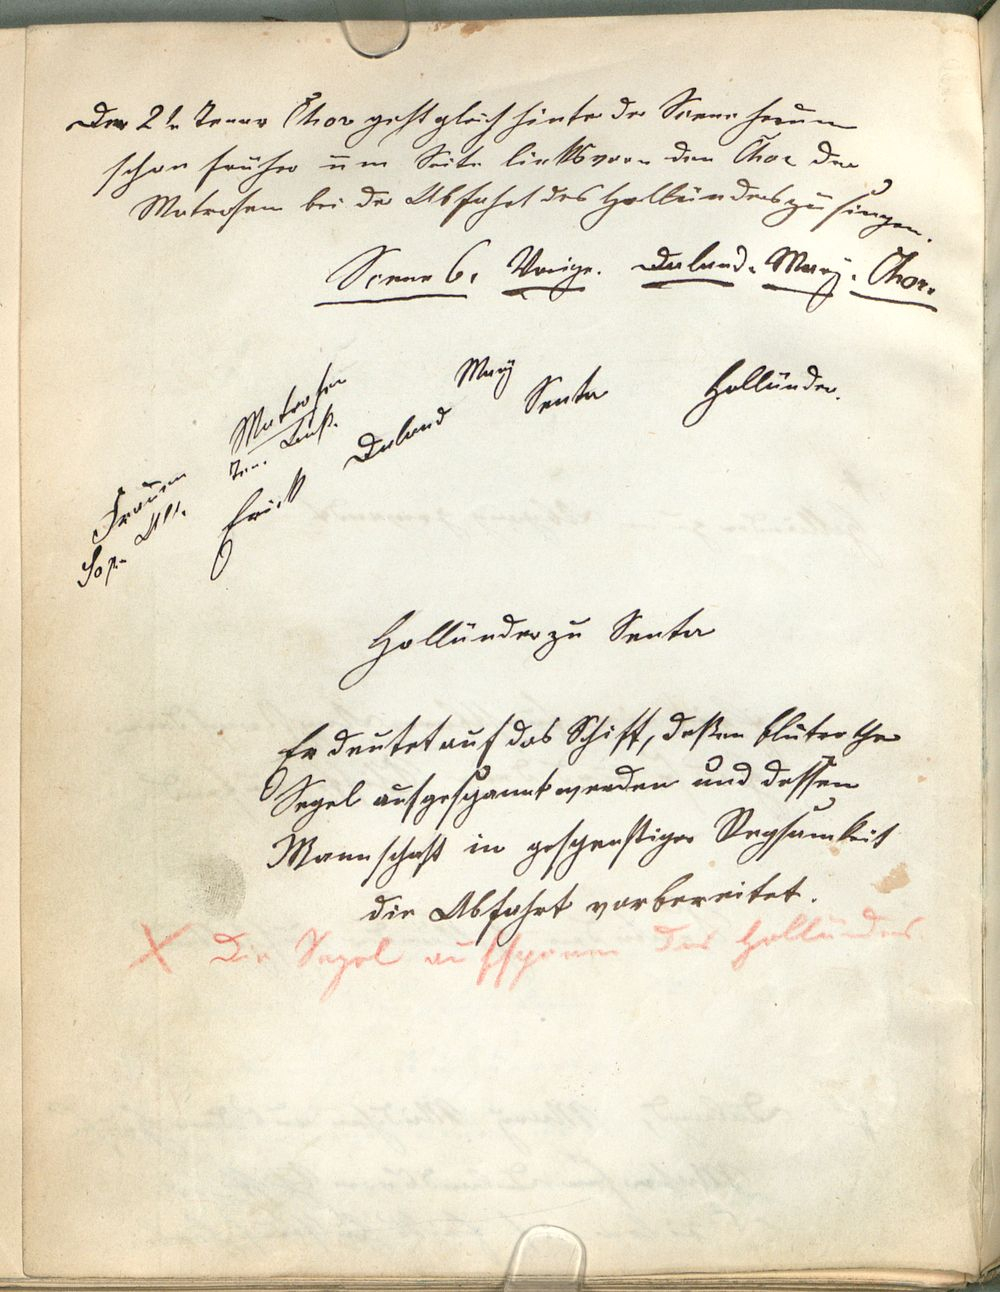 Der 2te Tenor Chor geht gleich hinter der Scene herum
schon früher um Seite links vorn den Chor der
Matrosen bei der Abfahrt des Holländers zu singen.
Scene 6. Vorige. Daland. Mary. Chor.
Mary
Matrosen
Ten. Bäß.
Frauen
Sop. Alt.
Erick
Daland
Senta
Holländer.
Holländer zu Senta
Er deutet auf das Schiff, deßen blutrothe
Segel aufgespannt werden und dessen
Mannschaft in gespenstiger Regsamkeit
die Abfahrt vorbereitet.
X Die Segel aufspannen des Holländers